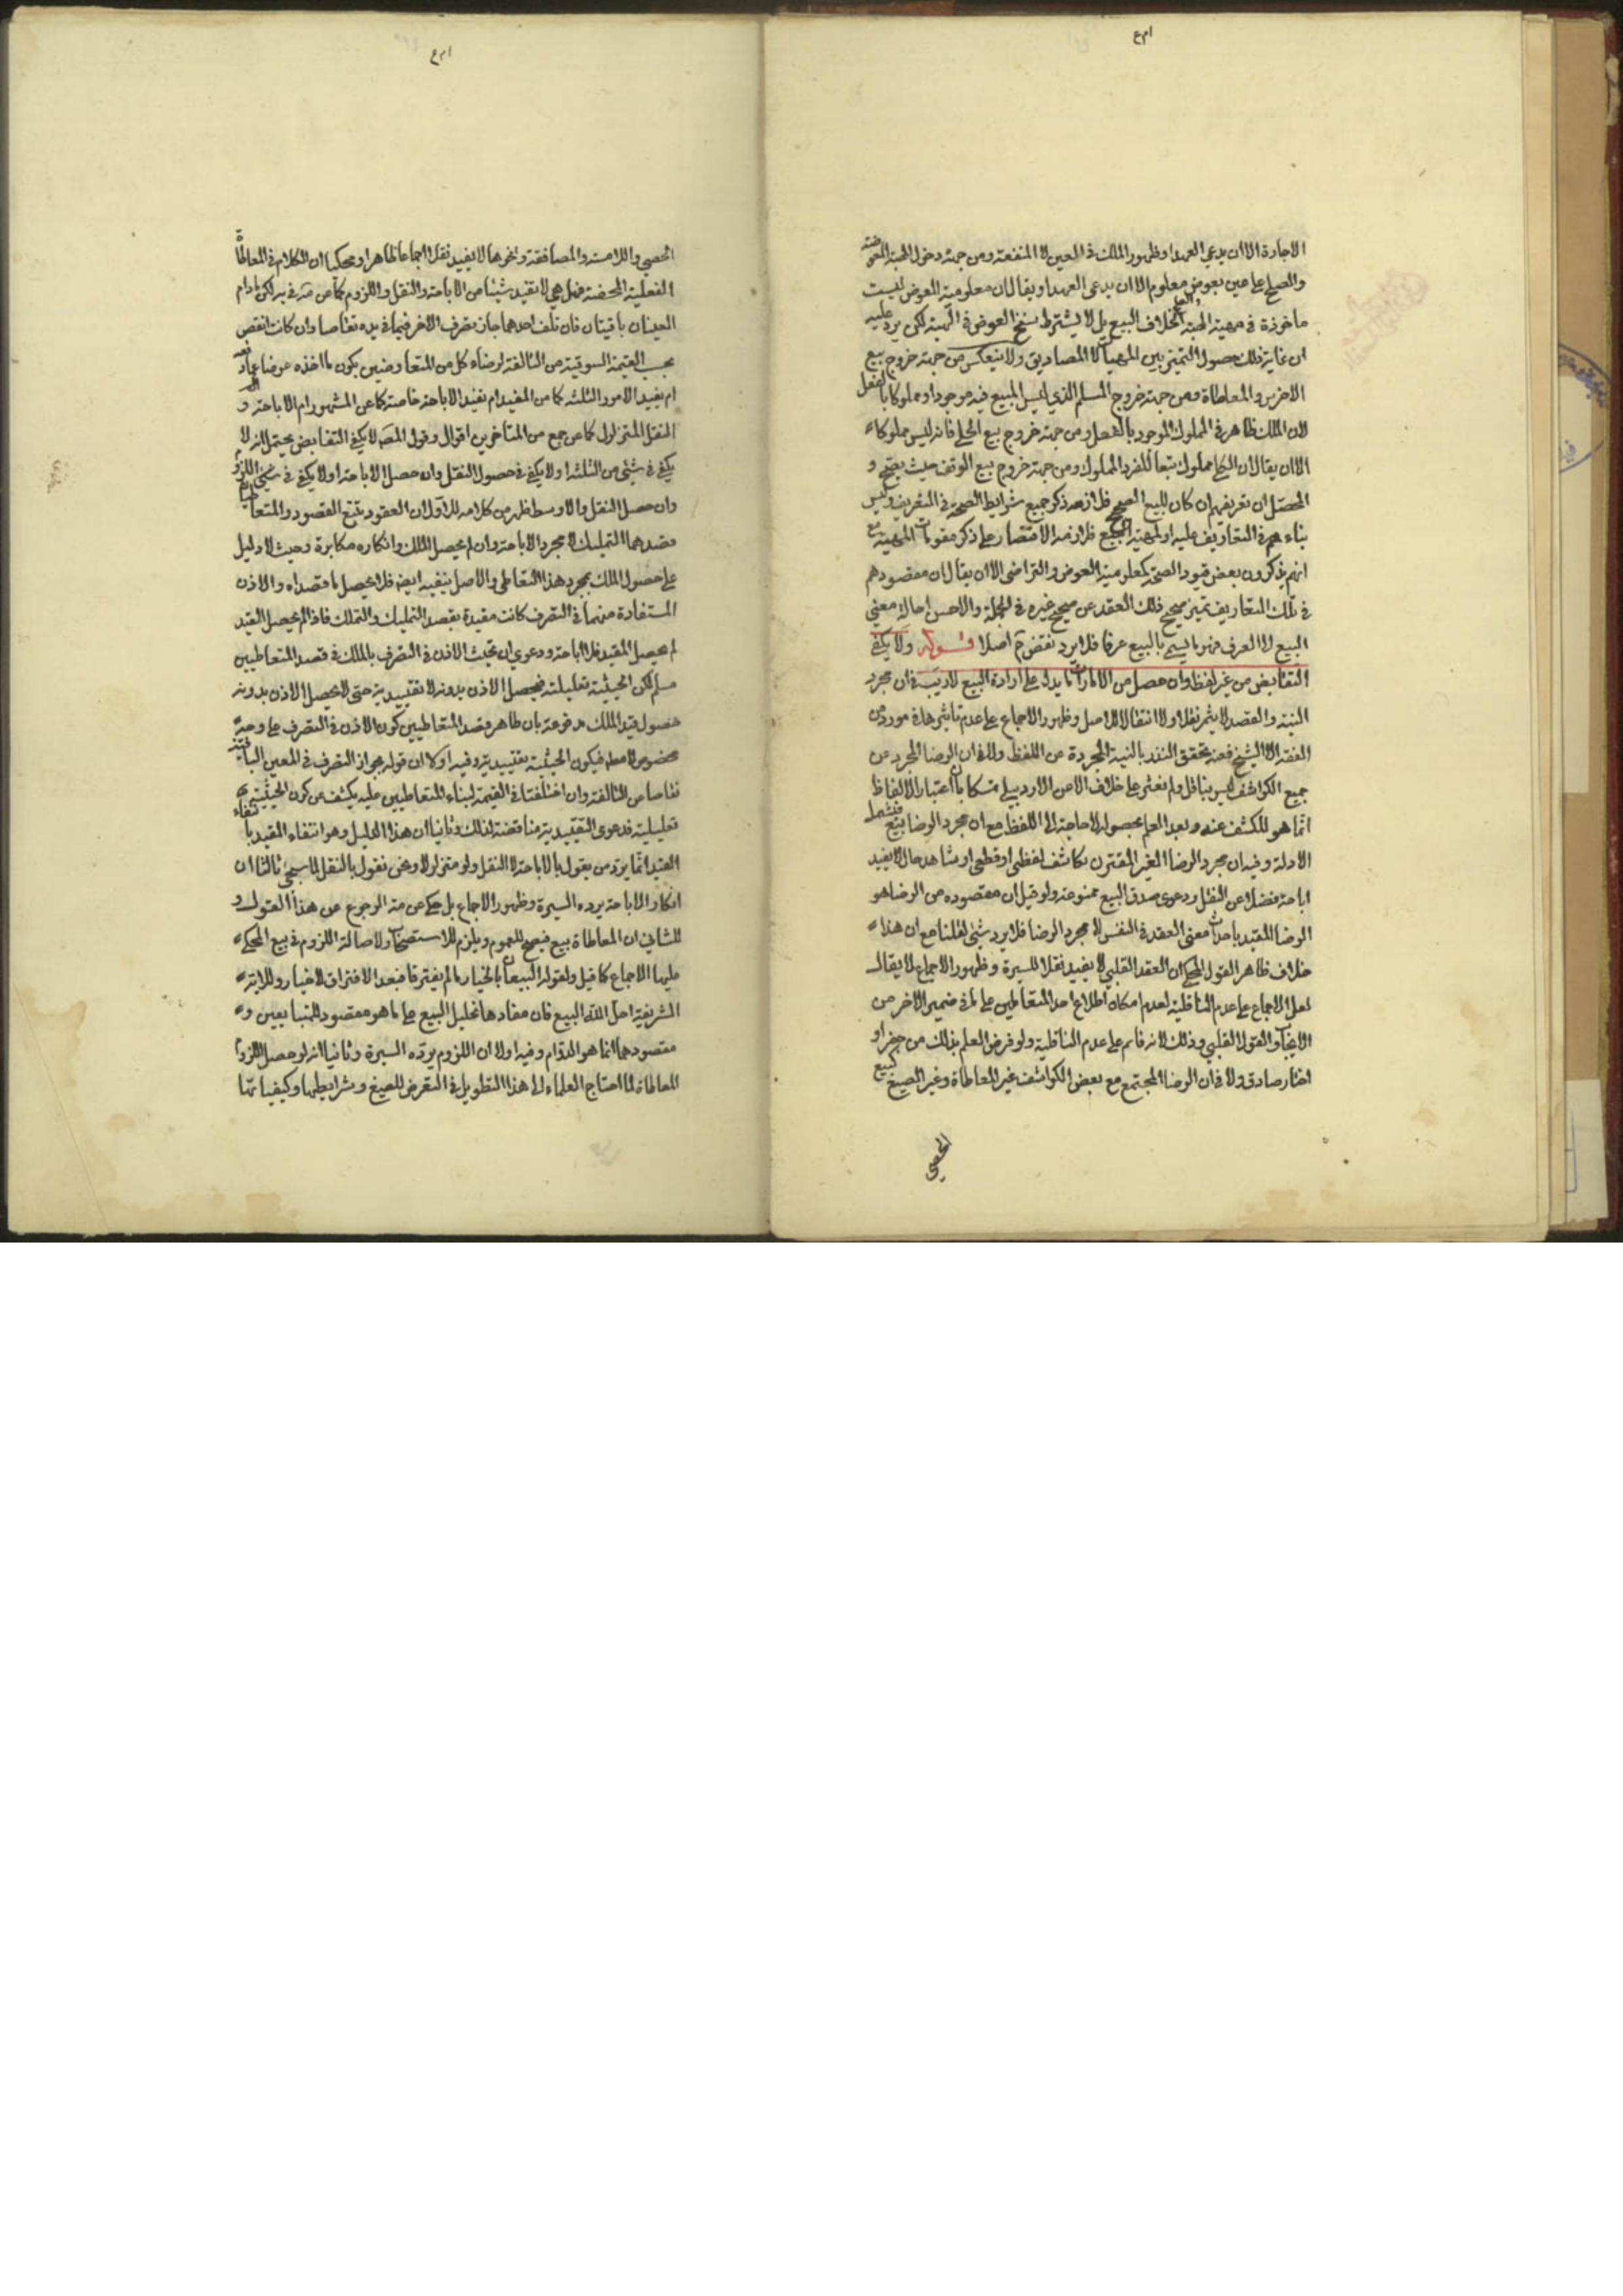 الاجارة الا ان يدعي العهد او ظهور الملك في العين لا المنفعة ومن جهة دخول الهبة المعوضة
والصلح على عين بعوض معلوم الا ان يدعى العهد او يقال ان معلومية العوض ليست
ماخوذة في مهية الهبة والصلح بخلاف البيع بل لا يشترط سنخ العوض في الهبة لكن يرد عليه
ان غاية ذلك حصول التميز بين المهيات لا المصاديق ولا ينعكس من جهة خروج بيع
الاخرس والمعاطاة ومن جهة خروج المسلم الذي ليس المبيع فيه موجودا ومملوكا بالفعل
لان الملك ظاهر في المملوك الموجود بالفعل ومن جهة خروج بيع الكلي فانه ليس مملوكا
الا ان يقال ان الكلي مملوك بتعا للفرد المملوك ومن جهة خروج بيع الوقف حيث يصح و
المحصل ان تعريفهم ان كان للبيع الصحيح فلازمه ذكر جميع شرايط الصحة في التعريف وليس
بناء هذه التعاريف عليه او لمهية البيع فلازمه الاقتصار على ذكر مقومات المهية مع
انهم يذكرون بعض قيود الصحة كمعلومية العوض والتراضي الا ان يقال ان مقصودهم
في تلك التعاريف تميز صحيح ذلك العقد عن صحيح غيره في الجملة والاحسن احالة معنى
البيع الى العرف فهو ما يسمى بالبيع عرفا فلا يرد نقض اصلا قوله ولا يكفي
التقابض من غير لفظ وان حصل من الامارات ما يدل على ارادة البيع لا ريب في ان مجرد
النية والقصد لا يثمر نقلا ولا انتقالا للاصل وظهور الاجماع على عدم تاثيرها في مورد من
الفقه الا الشيخ فعنه تحقق النذر بالنية المجردة من اللفظ والا فان الرضا المجرد عن
جميع الكواشف ليس بناقل ولم نعثر على خلاف الا من الاردبيلي متمسكا بان اعتبار الالفاظ
انما هو للكشف عنه وبعد العلم بحصوله لا حاجة الى اللفظ مع ان مجرد الرضا بيع فيشمله
الادلة وفيه ان مجرد الرضا الغير المقترن بكاشف لفظي او قطعي او شاهد حال لا يفيد
اباحة فضلا عن النقل ودعوى صدق البيع ممنوعة ولو قيل ان مقصوده من الرضا هو
الرضا المقيد باحداث معنى العقد في النفس لا مجرد الرضا فلا يرد شئ لقلنا مع ان هذا
خلاف ظاهر القول المحكي ان العقد القلبي لا يفيد نقلا للسيرة وظهور الاجماع لا يقال
لعل الاجماع على عدم الناقلية لعدم امكان اطلاع احد المتعاطيين على ما في ضمير الاخر من
الايجاب والقبول القلبي وذلك لانه قائم على عدم الناقلية ولو فرض العلم بذلك من جفر او
اخبار صادق ولا في ان الرضا المجتمع مع بعض الكواشف غير المعاطاة وغير الصيغ كبيع
الحصى
الحصى والملامسة والمصافقة ونحوها لا يفيد نقلا اجماعا ظاهرا ومحكيا ان الكلام في المعاطاة
الفعلية المحضة فهل هي لا تفيد شيئا من الاباحة والنقل واللزوم كما عن في لكن مادام
العينان باقيتان فان تلف احدهما جاز تصرف الاخر فيما في يده تقاصا وان كانت انقص
بحسب القيمة السوقية من التالفة لرضاء كل من المتعاوضين بكون ما اخذه عوضا عما دفعه
ام يفيد الامور الثلثة كما عن المفيد ام تفيد الاباحة خاصة كما عن المشهور ام الاباحة و
النقل المتزلزل كما عن جمع من المتاخرين اقوال وقول المصـ لا يكفي التقابض يحتمل انه لا
يكفي في شئ من الثلثة او لا يكفي في حصول النقل وان حصل الاباحة او لا يكفي في اللزوم
وان حصل النقل والاوسط اظهر من كلامه للاول ان العقود تتبع القصود والمتعاطيان
قصدهما التمليك لا مجرد الاباحة وان لم يحصل الملك وانكاره مكابرة وحيث لا دليل
على حصول الملك بمجرد هذا التعاطي والاصل ينفيه ايضـ فلا يحصل ما قصداه والاذن
المستفادة منهما في التصرف كانت مقيدة بقصد التمليك والتملك فاذا لم يحصل القيد
لم يحصل المقيد فلا اباحة ودعوى ان حيث الاذن في التصرف بالملك في قصد المتعاطيين
مسلم لكن الحيثية تعليلية فيحصل الاذن بدونه لا تقييدية حتى لا يحصل الاذن بدونه
حصول قيد الملك مدفوعة بان ظاهر قصد المتعاطيين كون الاذن في التصرف على وجه
مخصوص لا مطـ فيكون الحيثية تقييدية وفيه اولا ان قوله بجواز التصرف في المعين الباقية
تقاصا عن التالفة وان اختلفتا في القيمة لبناء المتعاطيين عليه يكشف عن كون الحيثية
تعليلية فدعوى التقييدية مناقضة لذلك وثانيا ان هذا الدليل وهو انتفاء المقيد بانتفاء
القيد انما يرد من يقول بالاباحة لا النقل ولو متزلزلا ونحن نقول بالنقل لما سيجئ ثالثا ان
انكار الاباحة يرده السيرة وظهور الاجماع بل حكي عن منه الرجوع عن هذا القول و
للثاني ان المعاطاة بيع فيصح للعموم ويلزم للاستصحاب ولاصالة اللزوم في بيع المحكي
عليها الاجماع كما قيل ولقوله البيعان بالخيار ما لم يفترقا فبعد الافتراق لا خيار وللاية
الشريفة احل الله البيع فان مفادها تحليل البيع على ما هو مقصود المتبايعين و
مقصودهما انما هو الدوام وفيه اولا ان اللزوم يرده السيرة وثانيا انه لو حصل اللزوم
المعاطاة لما احتاج العلماء الى هذا التطويل في التعرض للصيغ وشرايطها وكيفياتها